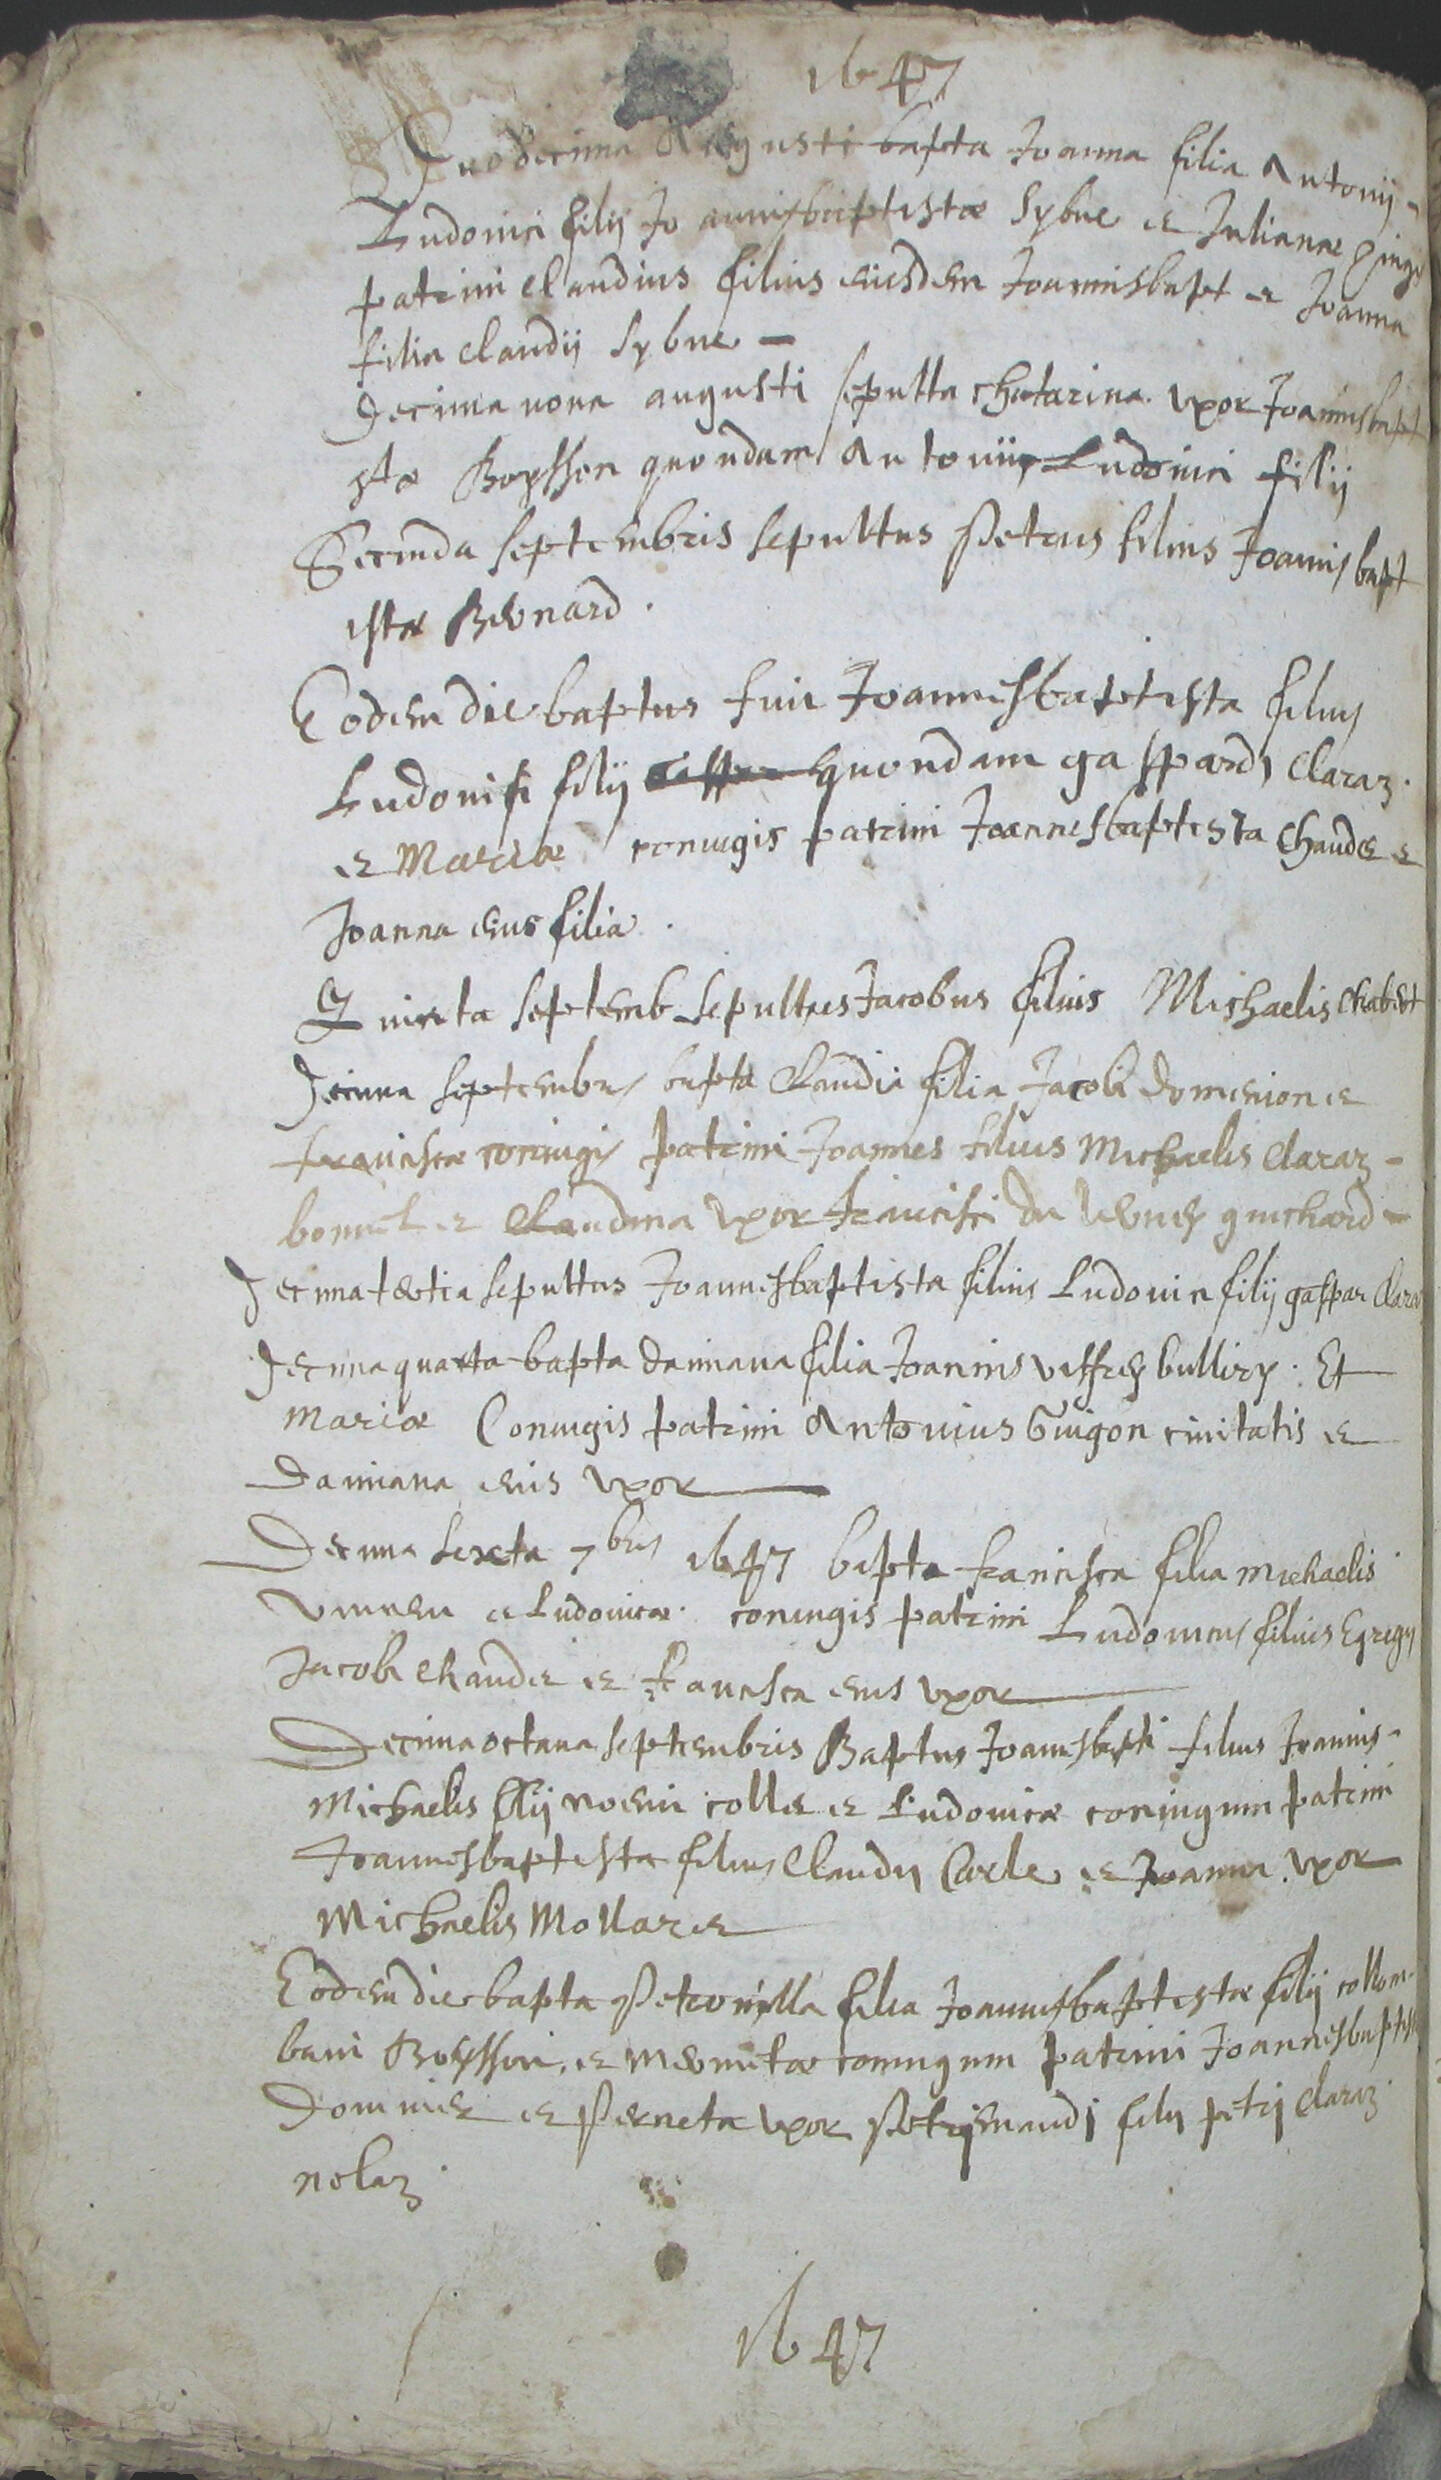 1647
Duodecima Augusti bapta Joanna filia Antonij
Ludovici filij Joannisbaptistæ Sybue et Julianæ
patrini Claudius filius eiusdem Joannisbapt et Joanna
filia Claudij Sybue
Decima nona augusti sepulta Chatarina uxor Joannisbapt
istæ Boysson quondam Antonij Ludovici filij
Secunda septembris sepultus Petrus filius Joannisbapt
istæ Bernard.
Eodem die baptus fuit Joannesbaptista filius
Ludovici filij quondam gaspardi Claraz.
et Mariæ coniugis patrini Joannesbaptista Chaude et
Joanna eius filia.
Quinta septemb sepultus Jacobus filius Michaelis
Decima septembris bapta Claudia filia Jacobi Domenion et
franciscæ coniugis patrini Joannes filius Michaelis Claraz
bonnel et Claudina uxor francisci du verney guichard
Decima tertia sepultus Joannesbaptista filius Ludovici filij gaspar Claraz
Decima quarta bapta damiana filia Joannis veffrey bulliry. Et
Mariæ Coniugis patrini Antonius Guigon civitatis et
Damiana eius uxor
Decima sexta 7bris 1647 bapta francisca filia Michaelis
et Ludovicæ coniugis patrini Ludovicus filius Egregij
Jacobi Chaude et francisca eius uxor
Decima octava septembris Baptus Joanesbapti filius Joannis
Michaelis filij collie et Ludovicæ coniugum patrini
Joannesbaptista filius Claudij Carle et Joanna uxor
Michaelis Mollare
Eodem die bapta Petronilla filia Joannisbaptistæ filij collom
bani Boysson et coniugum patrini Joannesbaptista
et Perneta uxor filij petrj Claraz
nolaz.
1647